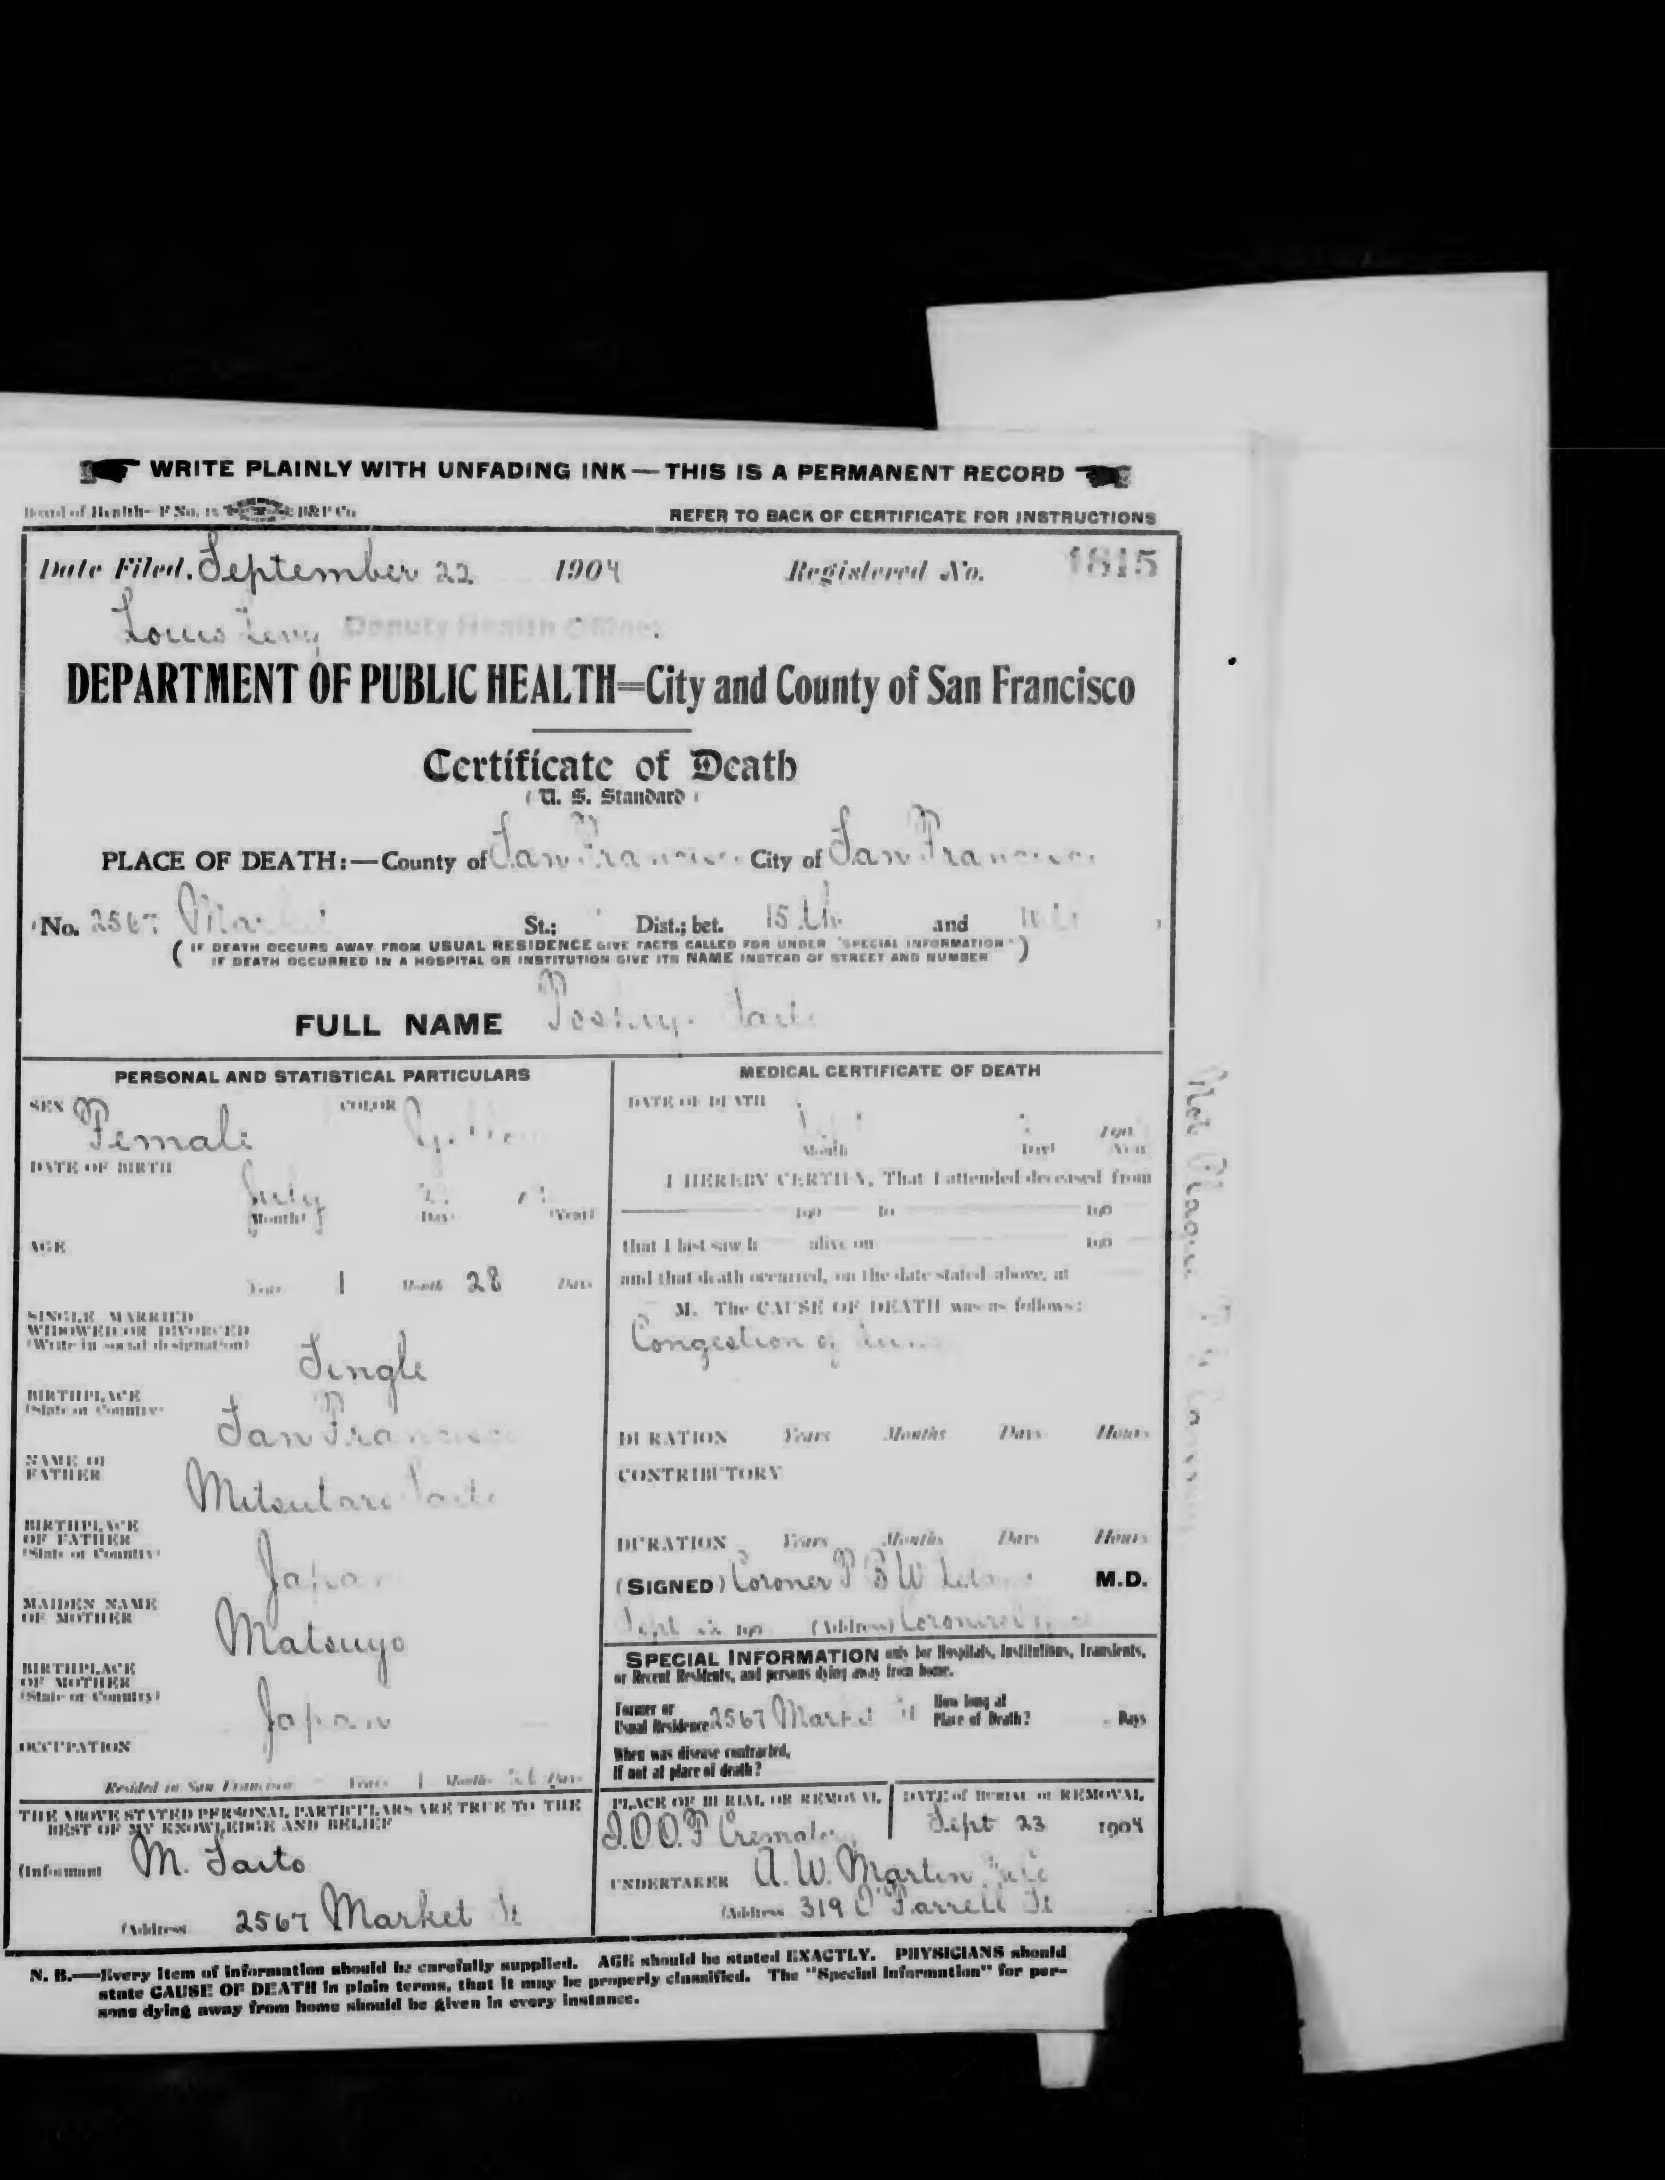 WRITE PLAINLY WITH UNFADING INK — THIS IS A PERMANENT RECORD
Board of Health—F No. 15 B&P Co
REFER TO BACK OF CERTIFICATE FOR INSTRUCTIONS
Date Filed, September 22 1904 Registered No. 1815
Louis Levy Deputy Health Officer
DEPARTMENT OF PUBLIC HEALTH=City and County of San Francisco
Certificate of Death
(U. S. Standard)
PLACE OF DEATH:—County of San Francisco City of San Francisco
No. 2567 Market St.; Dist.; bet. 15th and
(IF DEATH OCCURS AWAY FROM USUAL RESIDENCE GIVE FACTS CALLED FOR UNDER "SPECIAL INFORMATION"
IF DEATH OCCURRED IN A HOSPITAL OR INSTITUTION GIVE ITS NAME INSTEAD OF STREET AND NUMBER)
FULL NAME Saito
PERSONAL AND STATISTICAL PARTICULARS
SEX Female COLOR Yellow
DATE OF BIRTH July
(Month) (Day) (Year)
AGE
Years 1 Month 28 Days
SINGLE MARRIED
WIDOWED OR DIVORCED
(Write in social designation)
Single
BIRTHPLACE
(State or Country)
San Francisco
NAME OF
FATHER
Mitsutaro Saito
BIRTHPLACE
OF FATHER
(State or Country)
Japan
MAIDEN NAME
OF MOTHER
Matsuyo
BIRTHPLACE
OF MOTHER
(State or Country)
Japan
OCCUPATION
Resided in San Francisco Years 1 Months Days
THE ABOVE STATED PERSONAL PARTICULARS ARE TRUE TO THE
BEST OF MY KNOWLEDGE AND BELIEF
(Informant M. Saito
(Address 2567 Market St
MEDICAL CERTIFICATE OF DEATH
DATE OF DEATH
Sept 190
(Month) (Day) (Year)
I HEREBY CERTIFY, That I attended deceased from
190 to 190
that I last saw h alive on 190
and that death occurred, on the date stated above, at
M. The CAUSE OF DEATH was as follows:
Congestion of
DURATION Years Months Days Hours
CONTRIBUTORY
DURATION Years Months Days Hours
(SIGNED) Coroner M.D.
Sept 22 190 (Address) Coroners
SPECIAL INFORMATION only for Hospitals, Institutions, Transients,
or Recent Residents, and persons dying away from home.
Former or
Usual Residence 2567 Market St
How long at
Place of Death? Days
When was disease contracted,
If not at place of death?
PLACE OF BURIAL OR REMOVAL
I.O.O.F Crematory
DATE of BURIAL or REMOVAL
Sept 23 1904
UNDERTAKER A. W. Martin & Co
(Address 319 O'Farrell St
N. B.—Every item of information should be carefully supplied. AGE should be stated EXACTLY. PHYSICIANS should
state CAUSE OF DEATH in plain terms, that it may be properly classified. The "Special Information" for per-
sons dying away from home should be given in every instance.